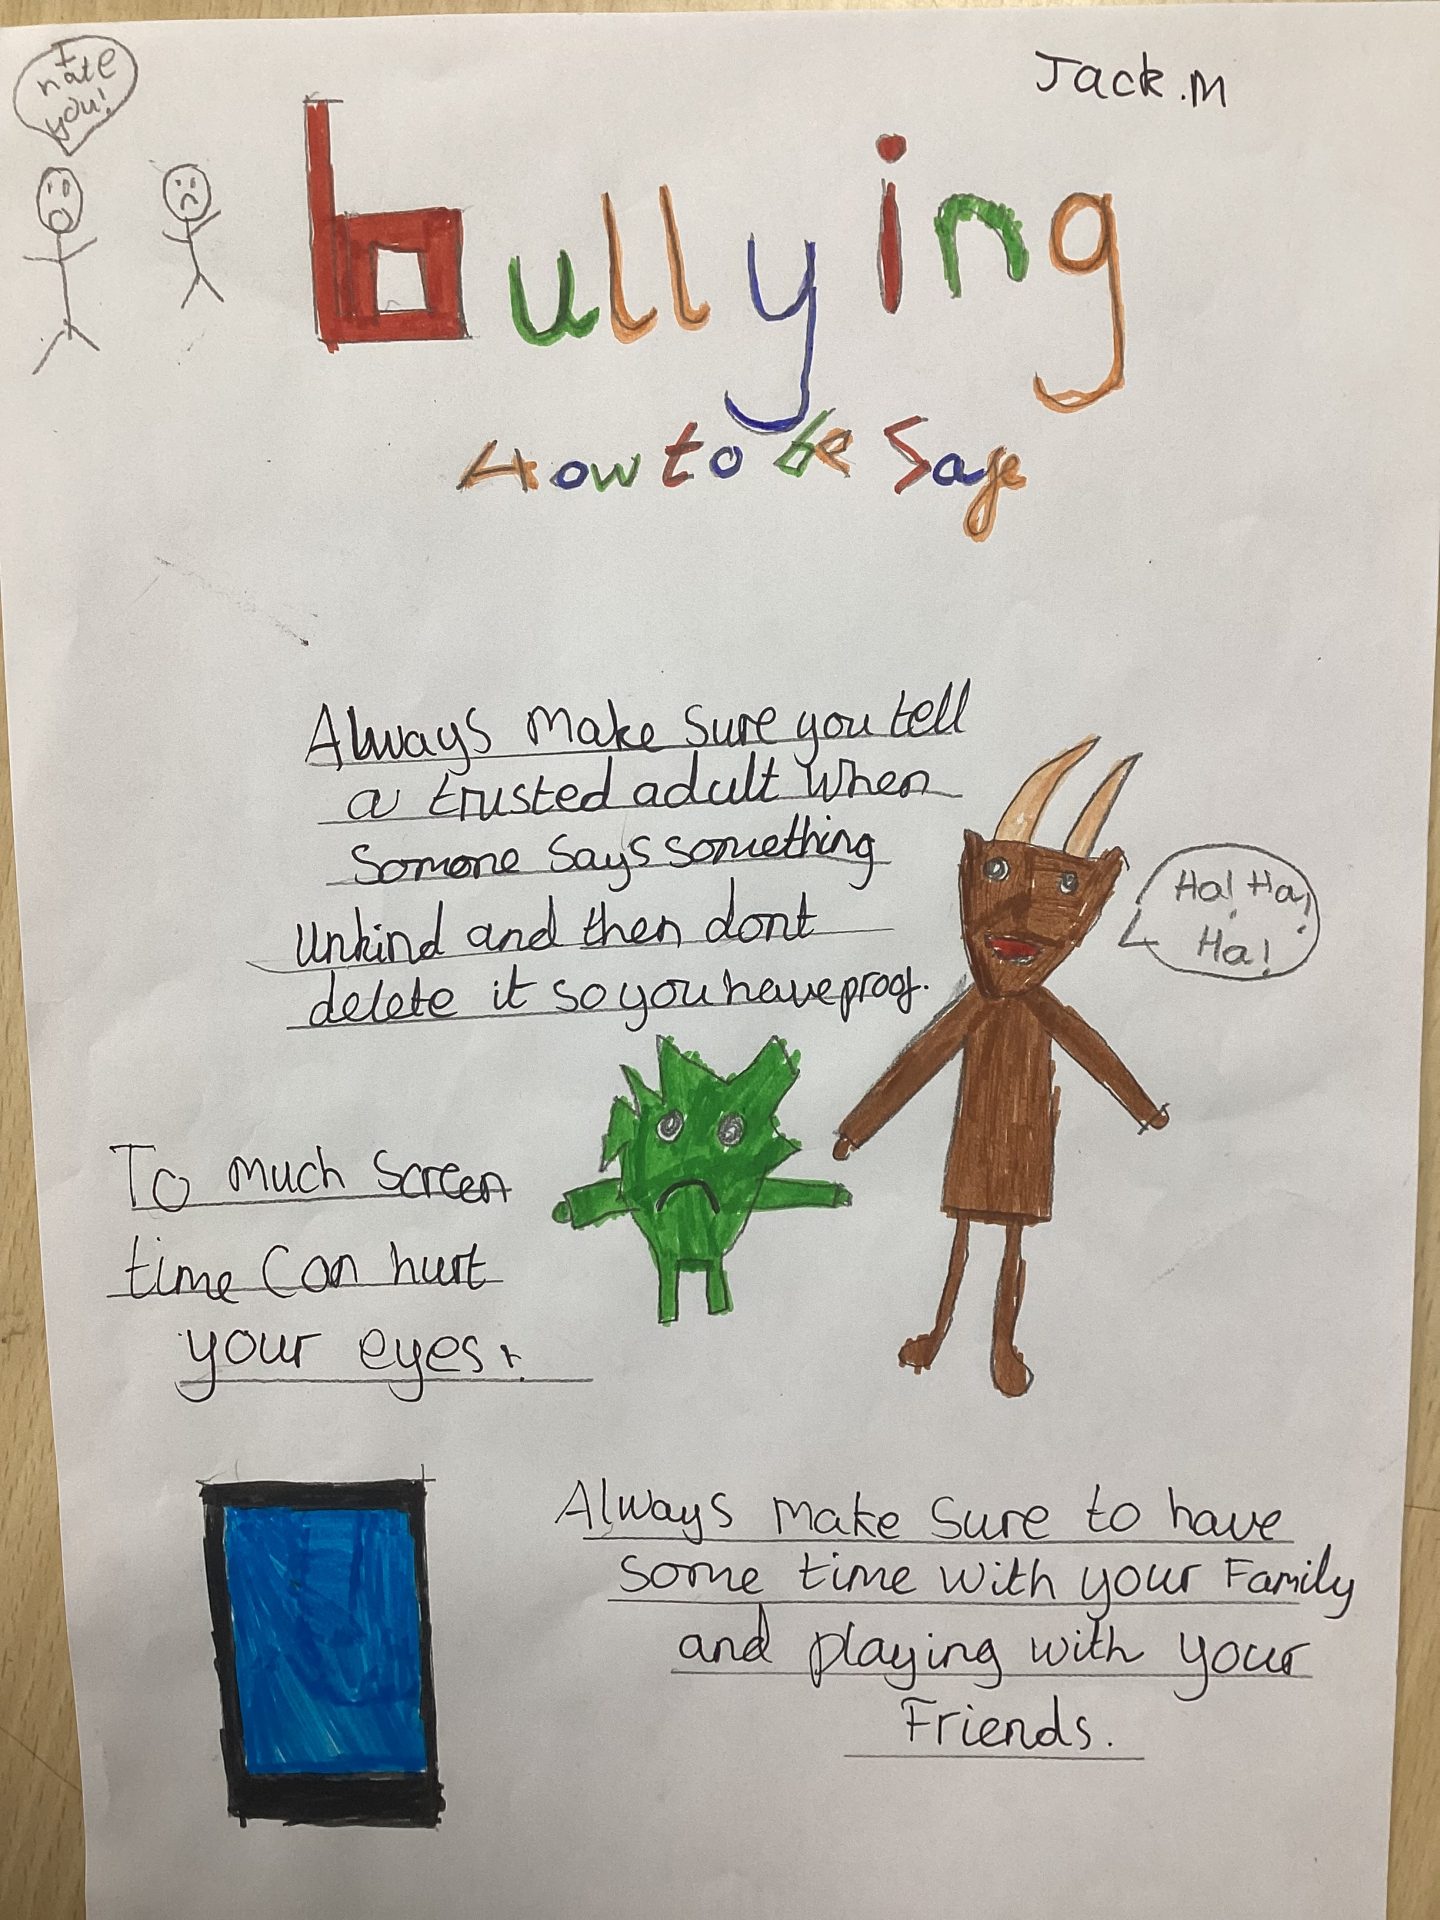 I
hate
you!
Jack.M
bullying
How to be Safe
Always make sure you tell
a trusted adult when
Somone says something
unkind and then dont
delete it so you have proof.
Ha! Ha!
Ha!
To much screen
time can hurt
your eyes.
Always make sure to have
some time with your Family
and playing with your
Friends.